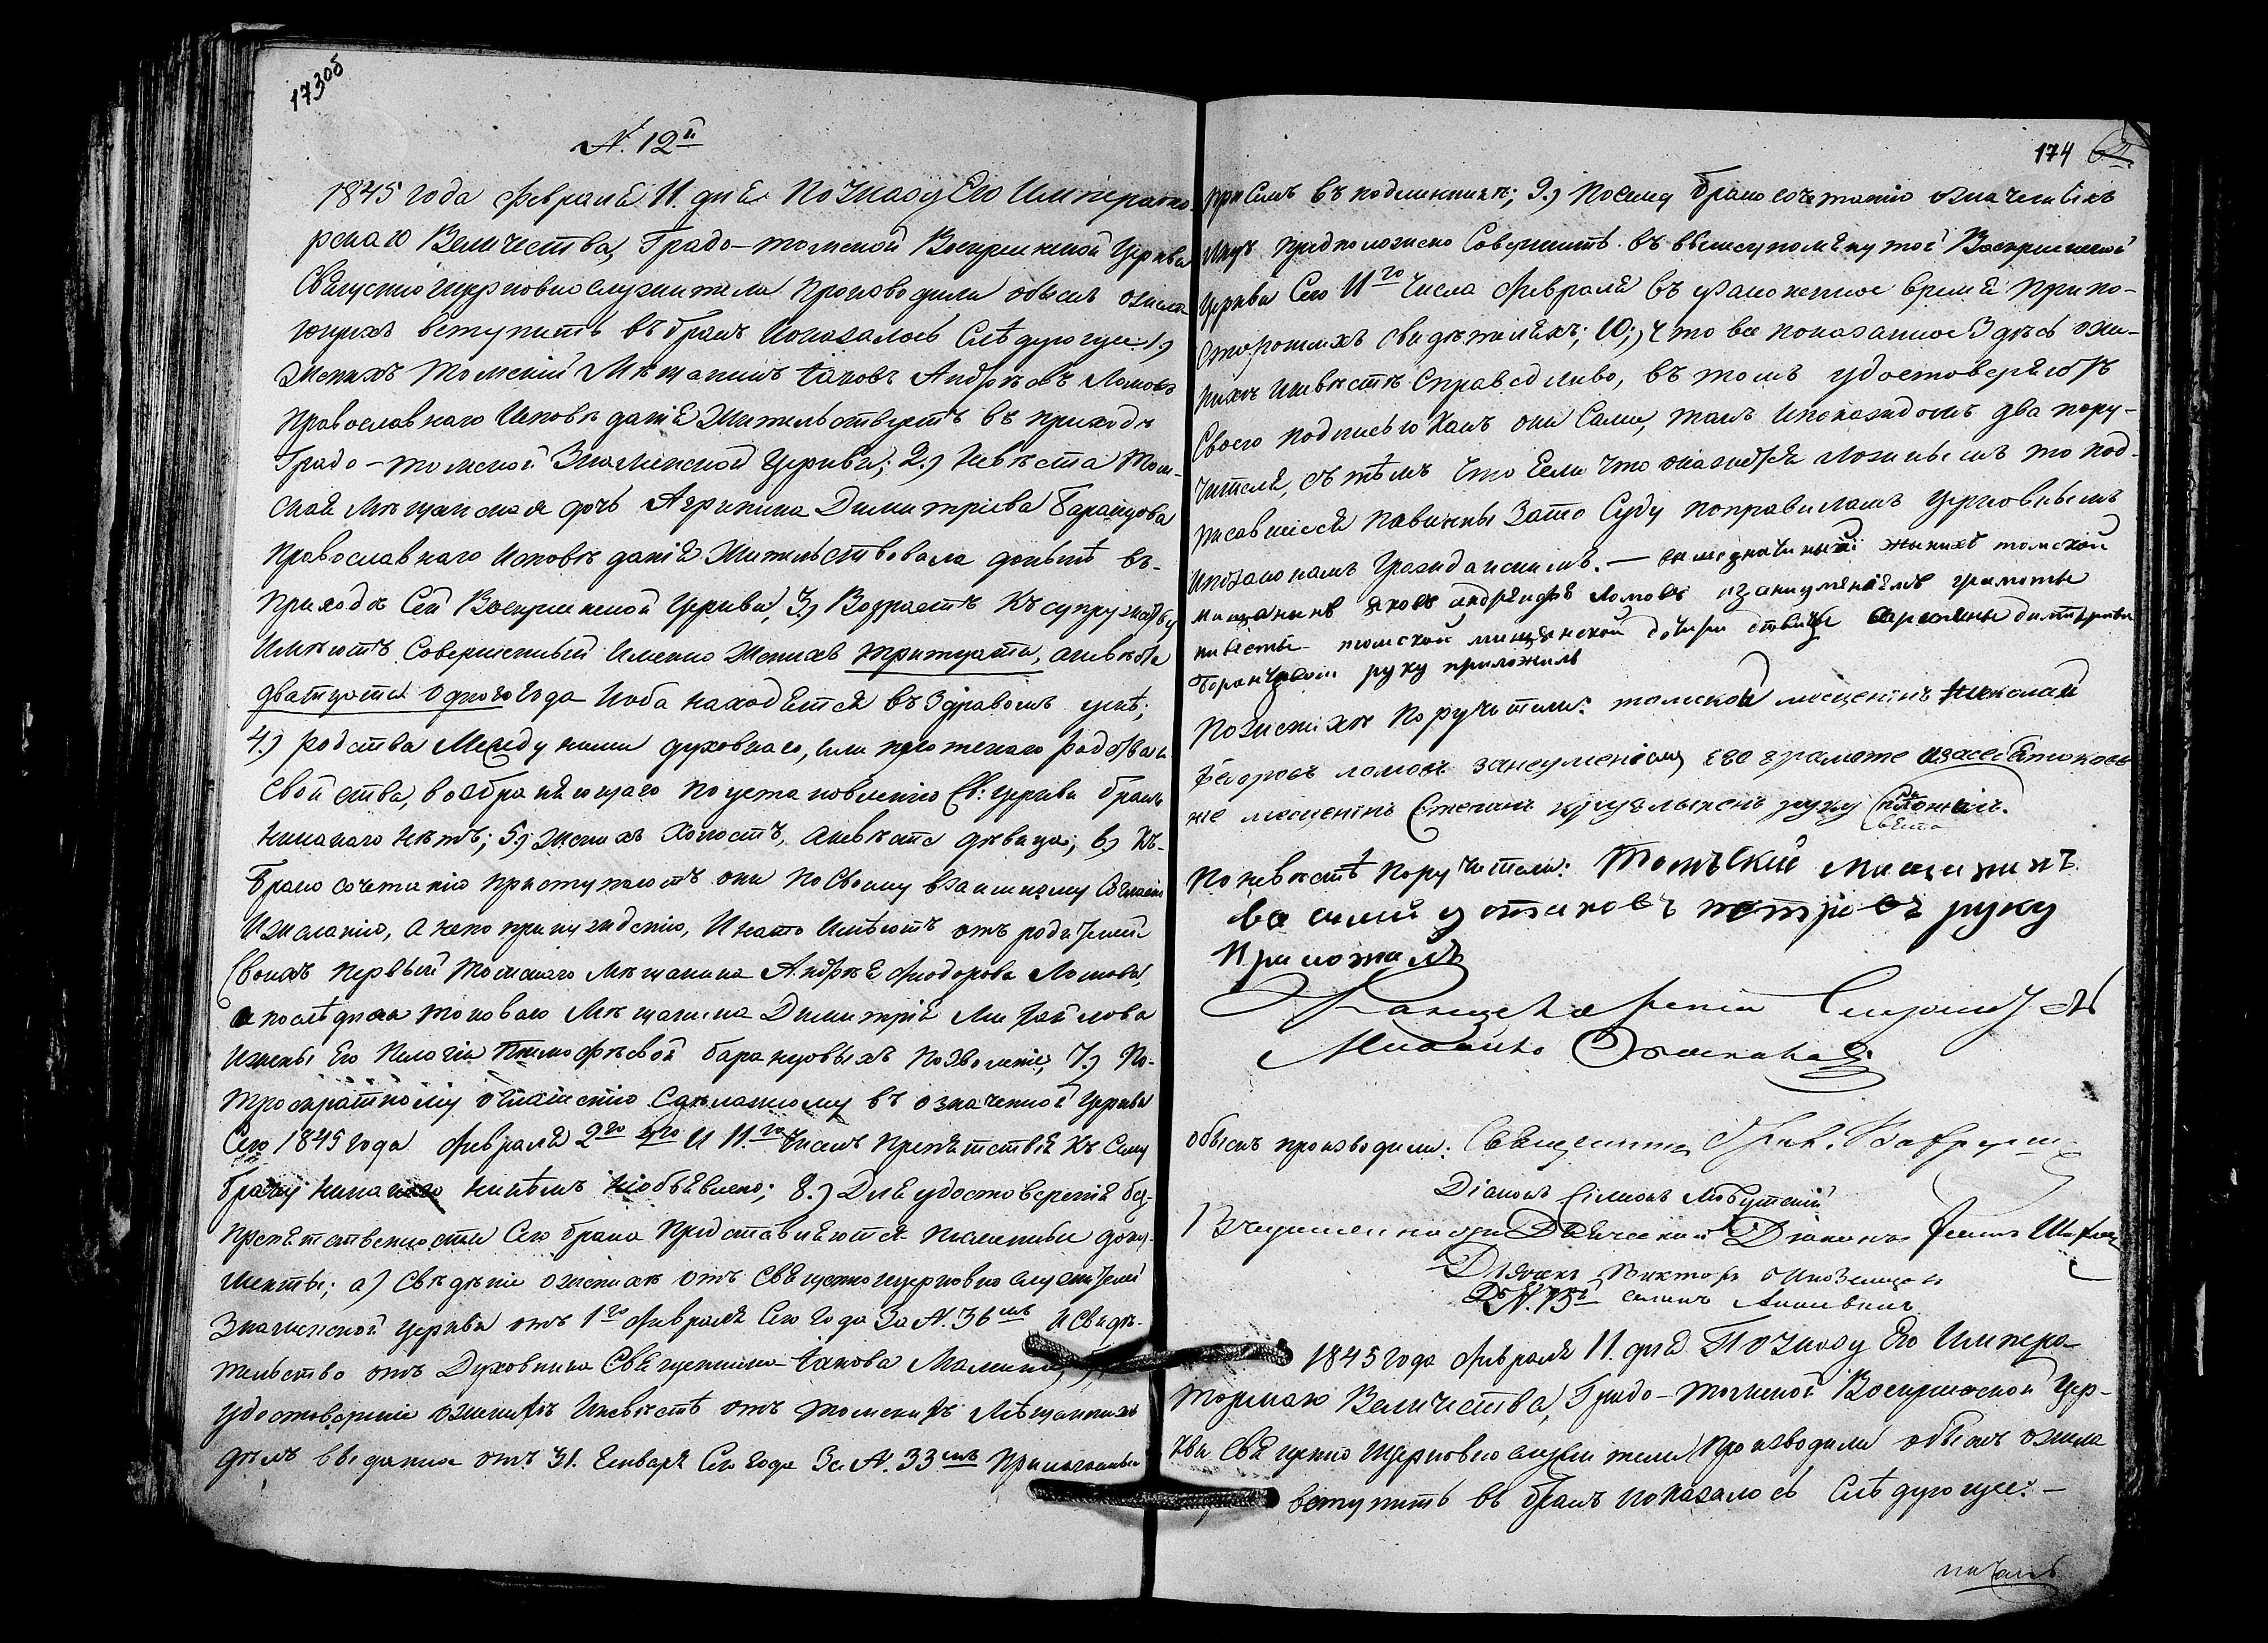 173об
N. 12й
1845 года февраля 11. дня По Указу Его Императо-
рскаго Величества, Градо-томской Воскресенской Церкви
Священноцерковнослужители производили обыскъ о жела-
ющихъ вступить въ бракъ и оказалось слѣдующее: 1.)
Женихъ Томскій Мѣщанинъ Іаковъ Андрѣевъ Ломовъ
Православнаго Исповѣданія Жительствуетъ въ приходѣ
Градо-томской Знаменской Церкви; 2.) Невѣста Том-
ская Мѣщанская дочь Агрипина Димитріева Баранцова
Православнаго Исповѣданія Жительствовала донынѣ въ
Приходѣ Сей Воскресенской Церкви, 3.) Возрастъ Къ супружеству
Имѣютъ Совершенный Именно Женихъ тритцати, а невѣста
дватцати одного года И оба находятся въ Здравомъ умѣ;
4.) родства Между ними духовнаго, или плотскаго родства и
Свойства, возбраняющаго По установленію Св: Церкви бракъ
никакаго нѣтъ; 5.) женихъ Холостъ, а невѣста дѣвица; 6.) Къ
бракосочетанію приступаютъ они По Своему взаимному Согласію
И желанію, а не по принужденію, И на то Имѣютъ отъ родителей
Своихъ первый Томскаго Мѣщанина Андрѣя Феодорова Ломова,
а послѣдняя таковаго Мѣщанина Димитрія Михайлова
И жены Его Пелагіи Тимофѣевой Баранцовыхъ Позволеніе, 7.) По
Троекратному оглашенію Сдѣланному въ означенной Церкви
Сего 1845 года февраля 2го 4го И 11.го Числъ Препятствія Къ Сему
браку никакаго никѣмъ необъявлено; 8.) Для удостоверенія без-
препятственности Сего брака Представляются Писменные доку-
менты; а) Свѣдѣніе о женихѣ отъ Священноцерковнослужителей
Знаменской Церкви отъ 1го февраля Сего года За N. 36мъ И Свидѣ-
тельство отъ Духовника Священника Іакова
Удостовереніе о женихѣ И невѣстѣ отъ Томскихъ Мѣщанскихъ
дѣлъ выданное отъ 31. Генваря Сего года За N. 33мъ Прилагаемые
174
при Семъ въ подлинникѣ; 9.) По сему бракосочетаніе означенныхъ
лицъ предположено Совершить въ вышеупомянутой Воскресенской
Церкви Сего 11го Числа февраля въ узаконенное время при по-
стороннихъ свидѣтеляхъ; 10.) что все показанное Здѣсь о же-
нихѣ и невѣстѣ Справедливо, въ томъ удостоверяютъ
Своею подписью Какъ они Сами, такъ и по каждомъ два пору-
чителя, съ тѣмъ что Если что окажется ложнымъ то под-
писавшіеся повинны За то Суду по правиламъ Церковнымъ
и по законамъ Гражданскимъ. — женихъ томской
мещанинъ яковъ андреевъ ломовъ и за неуменіемъ грамоты
невѣсты томской мещанской дочери девицы агрепены дмитревой
баранцовой руку приложилъ
По женихѣ Поручители: томской мещенинъ Николай
Федоровъ ломовъ за неуменіемъ его грамоте
же мещенинъ Степанъ руку приложилъ.
По невѣстѣ Поручители: Томъский мещенинъ
василей петровъ руку
приложилъ
Канцелярскій Служитель
Михайло
обыскъ производили: Священникъ
Діаконъ Симеонъ Любутскій
Діаконъ
Дьячекъ Викторъ
N. 13й
1845 года февраля 11. дня По Указу Его Импера-
торскаго Величества, Градо-томской Воскресенской Цер-
кви Священно церковно служители Производили обыскъ о жела
вступить въ бракъ И оказалось Слѣдующее: —